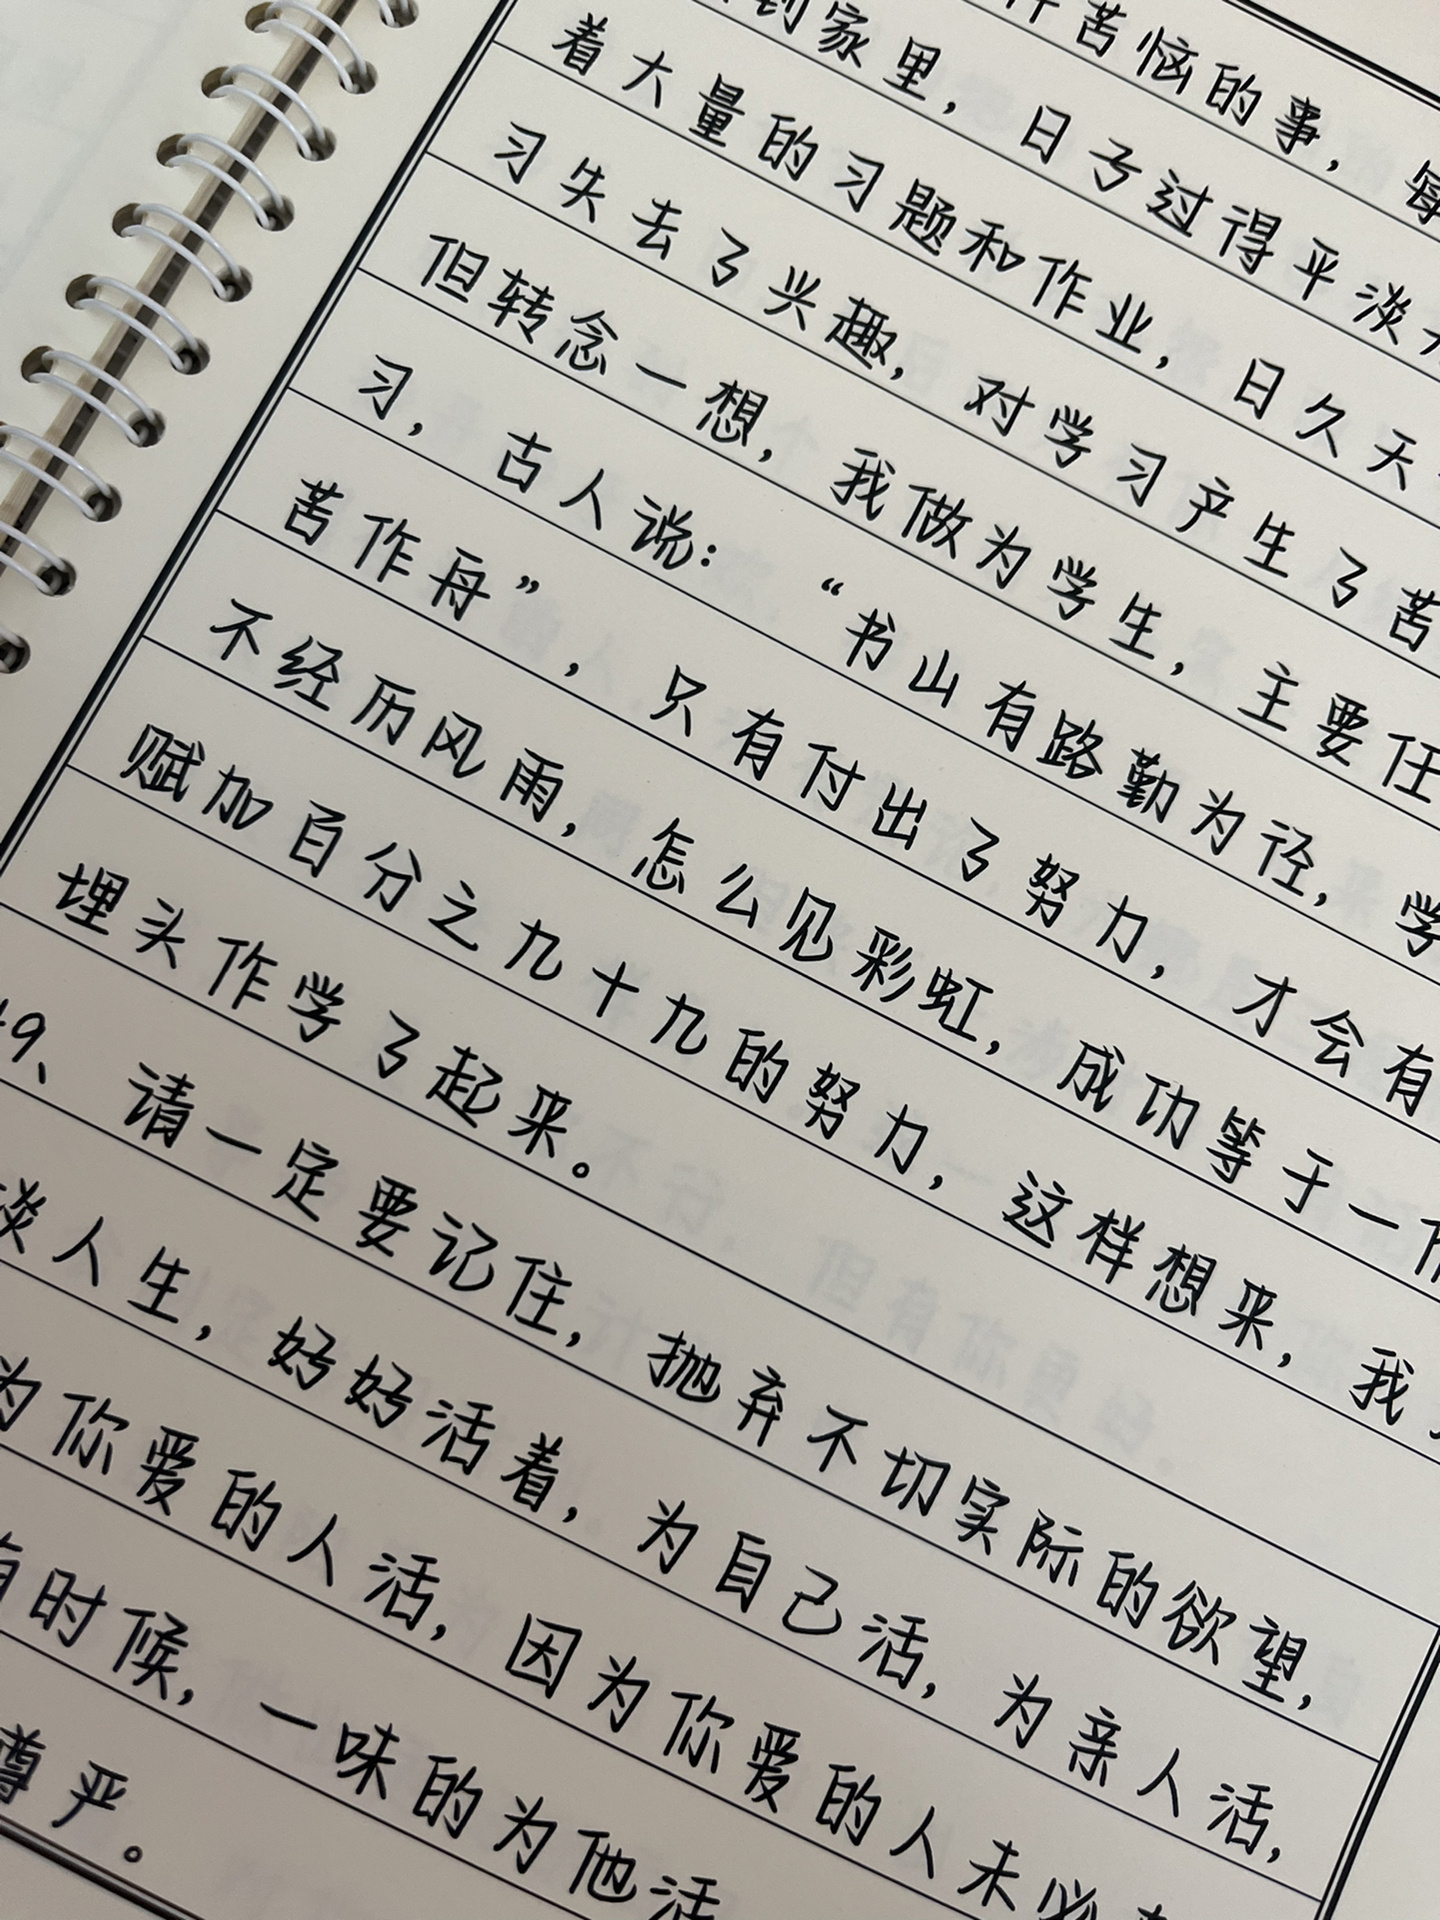 苦恼的事，
到家里，日子过得平淡
着大量的习题和作业，日久天
习失去了兴趣，对学习产生了苦
但转念一想，我做为学生，主要任
习，古人说：“书山有路勤为径，学
苦作舟”，只有付出了努力，才会有
不经历风雨，怎么见彩虹，成功等于一
赋加百分之九十九的努力，这样想来，我
埋头作学了起来。
9、请一定要记住，抛弃不切实际的欲望，
淡人生，好好活着，为自己活，为亲人活，
为你爱的人活，因为你爱的人未必
有时候，一味的为他活
尊严。